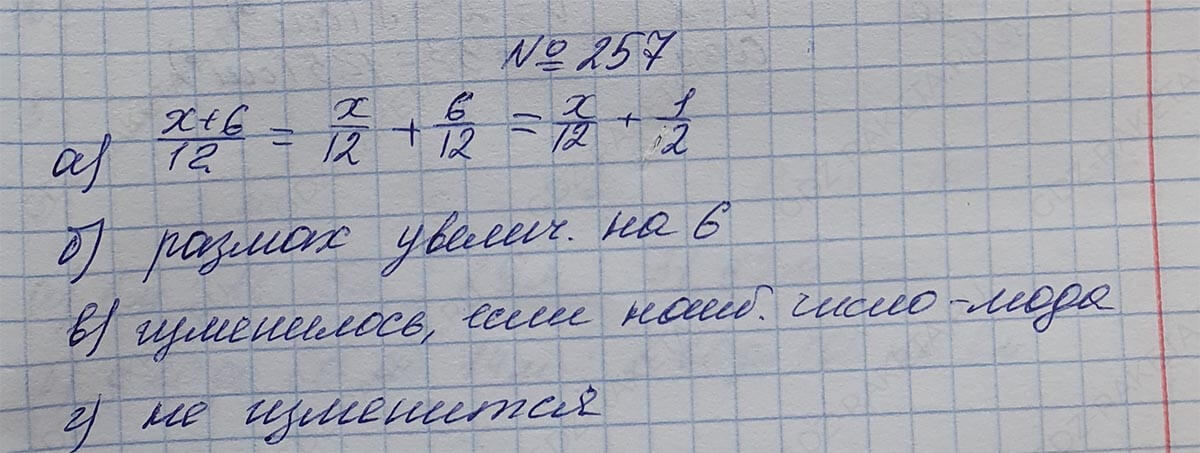 № 257
а) x+6/12 = x/12 + 6/12 = x/12 + 1/2
б) размах увелич. на 6
в) изменилось, если наиб. число - мода
г) не изменится